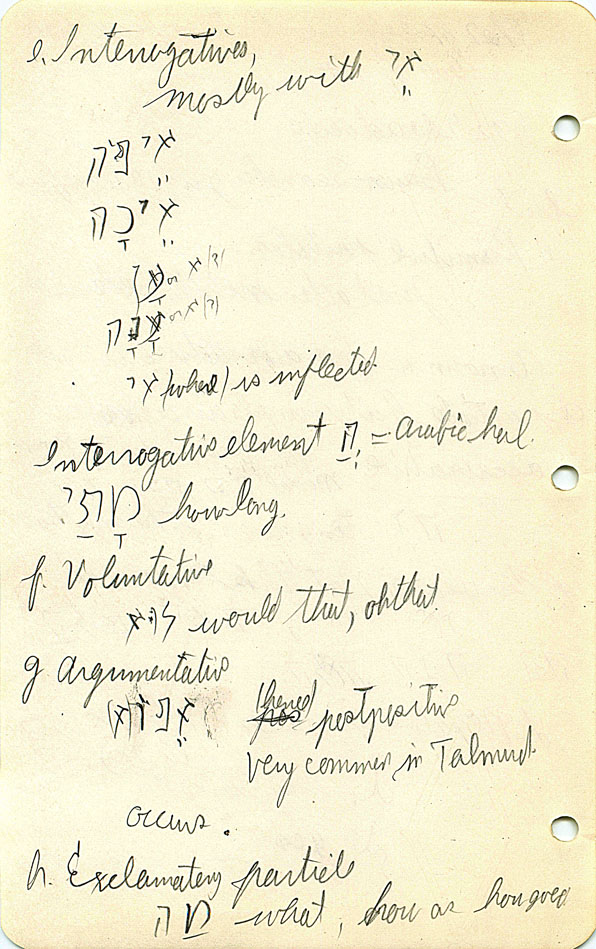 e. Interrogatives,
mostly with אֵי
אֵיפֹה
אֵיכָה
or א(?)
or א(?)
אי (where) is inflected
Interrogative element הֲ = arabic hal.
מָתַי how long.
f. Voluntative
לוא would that, oh that.
g Argumentative
אֵפוֹ(א) (hence) postpositive
Very common in Talmud
occurs.
h. Exclamatory particle
מַה what, how as how good